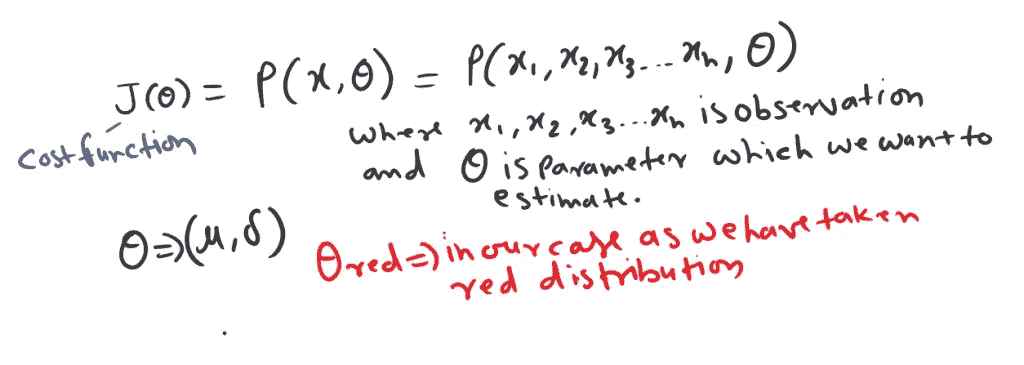 J(θ) = P(x,θ) = P(x₁,x₂,x₃...xₙ,θ)
cost function
where x₁,x₂,x₃...xₙ is observation
and θ is parameter which we want to
estimate.
θ=>(μ,δ)
θred=> in our case as we have taken
red distribution